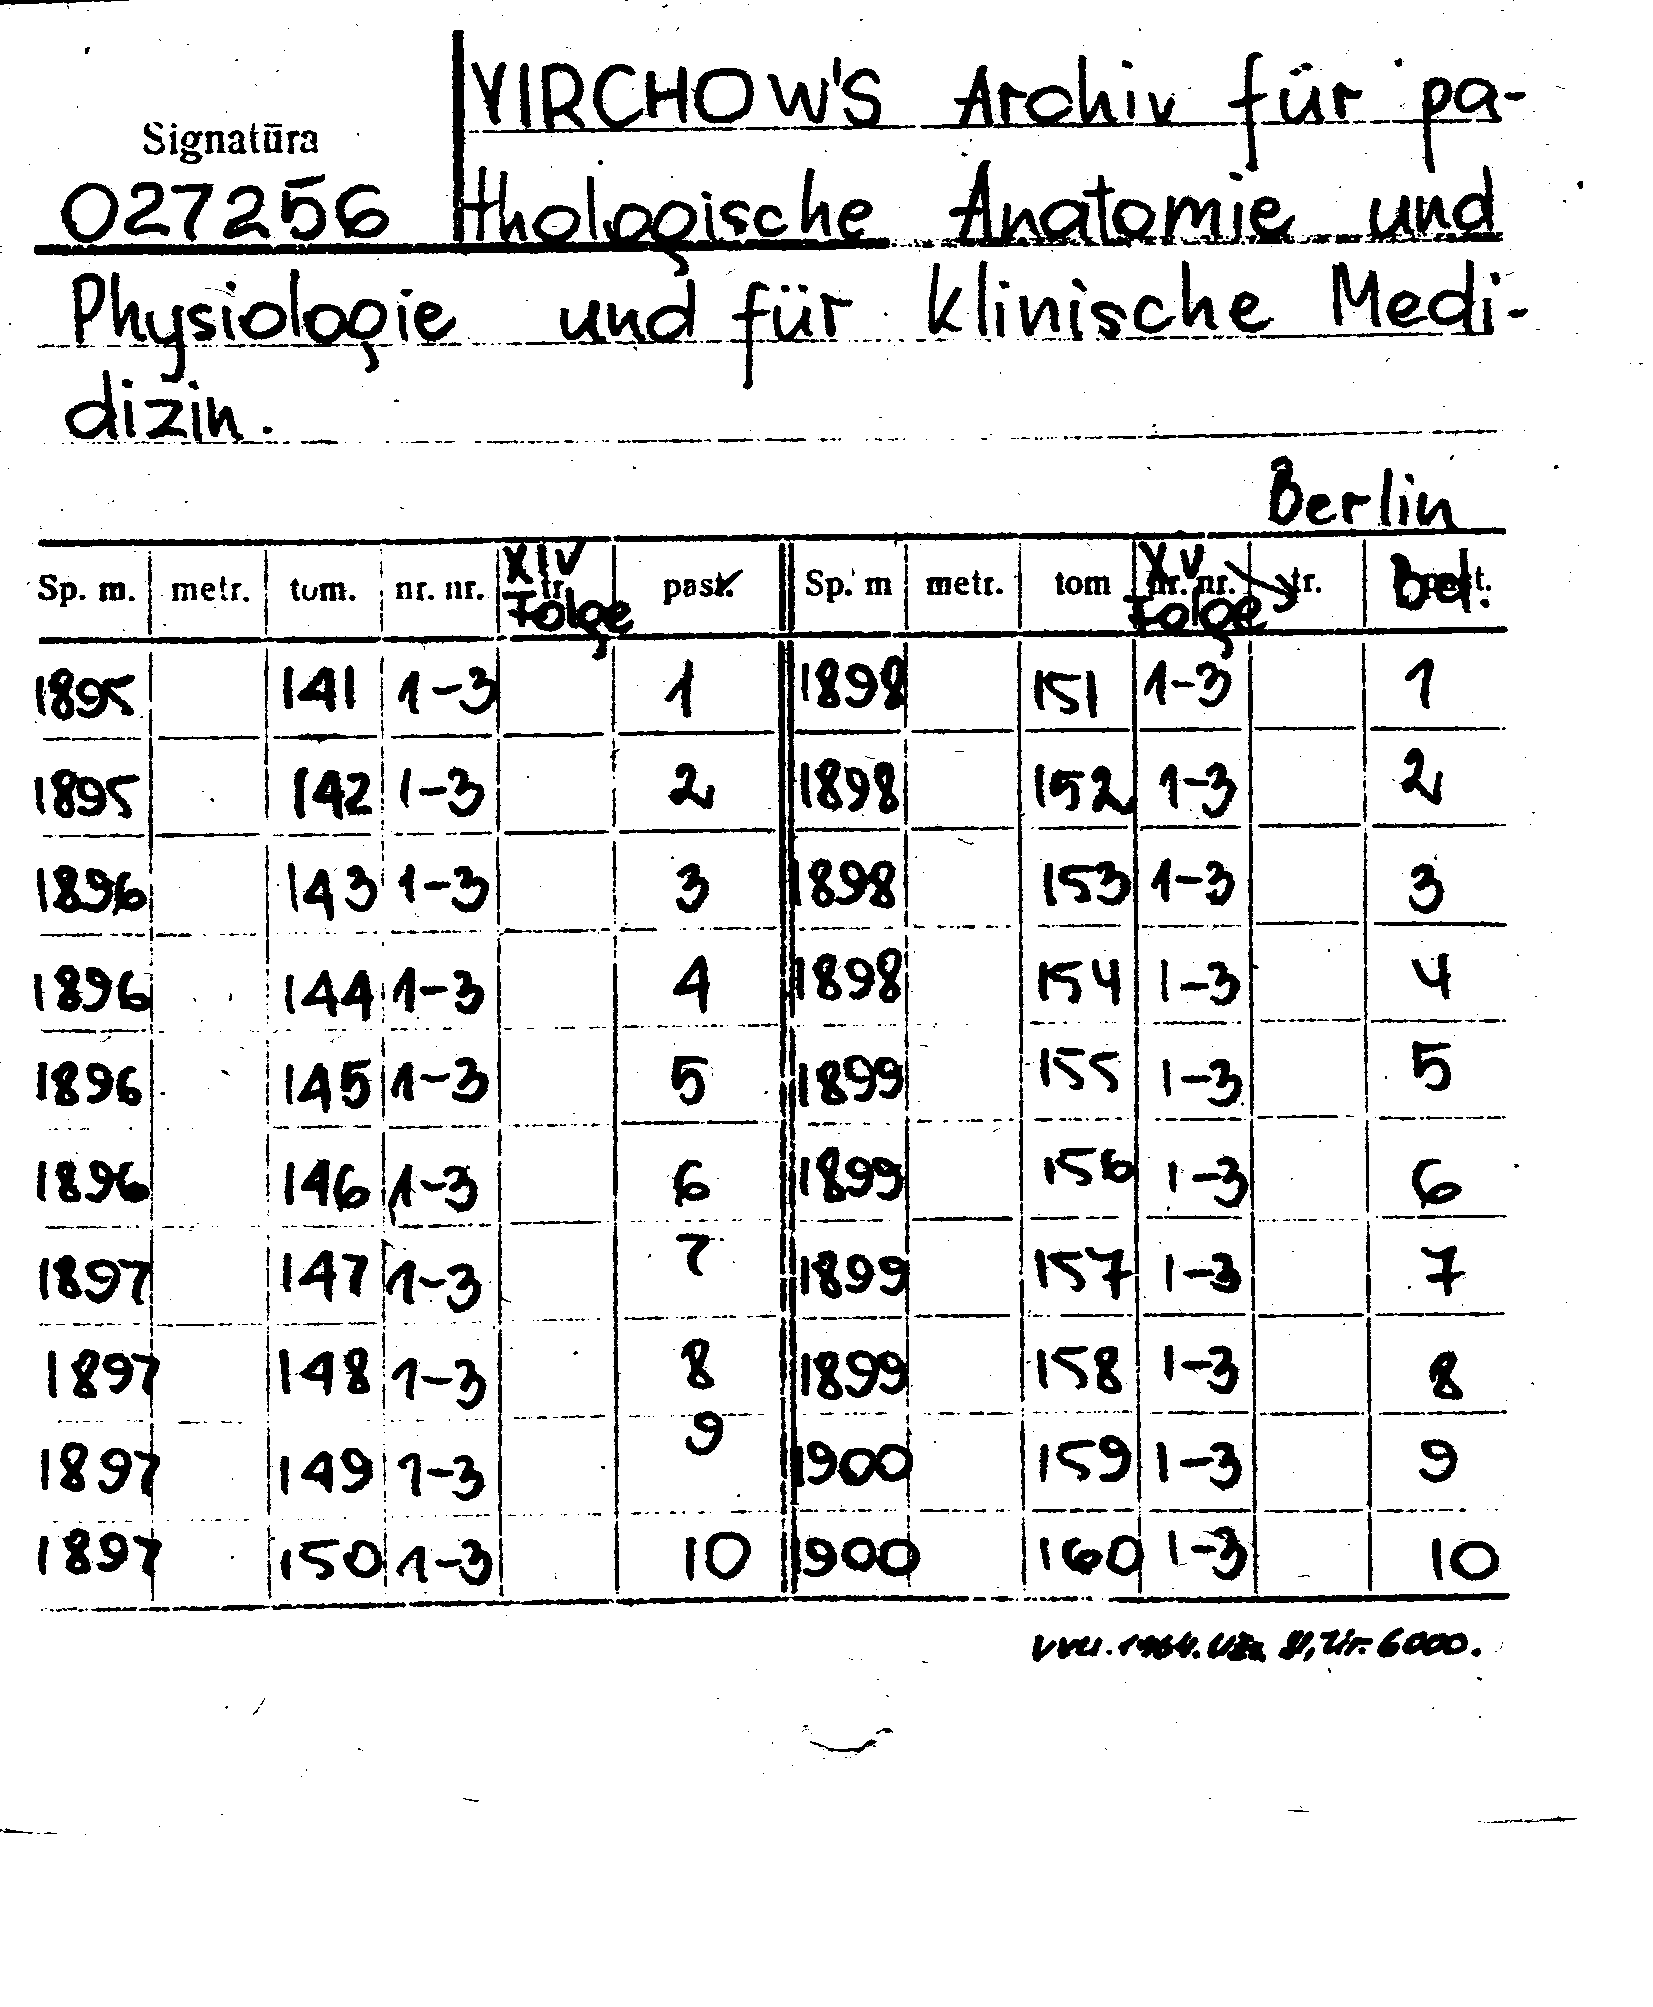 VIRCHOW'S Archiv für pa-
Signatūra
027256 thologische Anatomie und
Physiologie und für klinische Medi-
dizin.
Berlin
Sp. m. metr. tom. nr. nr. XIV Folge past. Sp. m metr. tom XV Folge tr. Bd.
1895 141 1-3 1 1898 151 1-3 1
1895 142 1-3 2 1898 152 1-3 2
1896 143 1-3 3 1898 153 1-3 3
1896 144 1-3 4 1898 154 1-3 4
1896 145 1-3 5 1899 155 1-3 5
1896 146 1-3 6 1899 156 1-3 6
1897 147 1-3 7 1899 157 1-3 7
1897 148 1-3 8 1899 158 1-3 8
1897 149 1-3 9 1900 159 1-3 9
1897 150 1-3 10 1900 160 1-3 10
VVU. 1964. Užs. Tir. 6000.